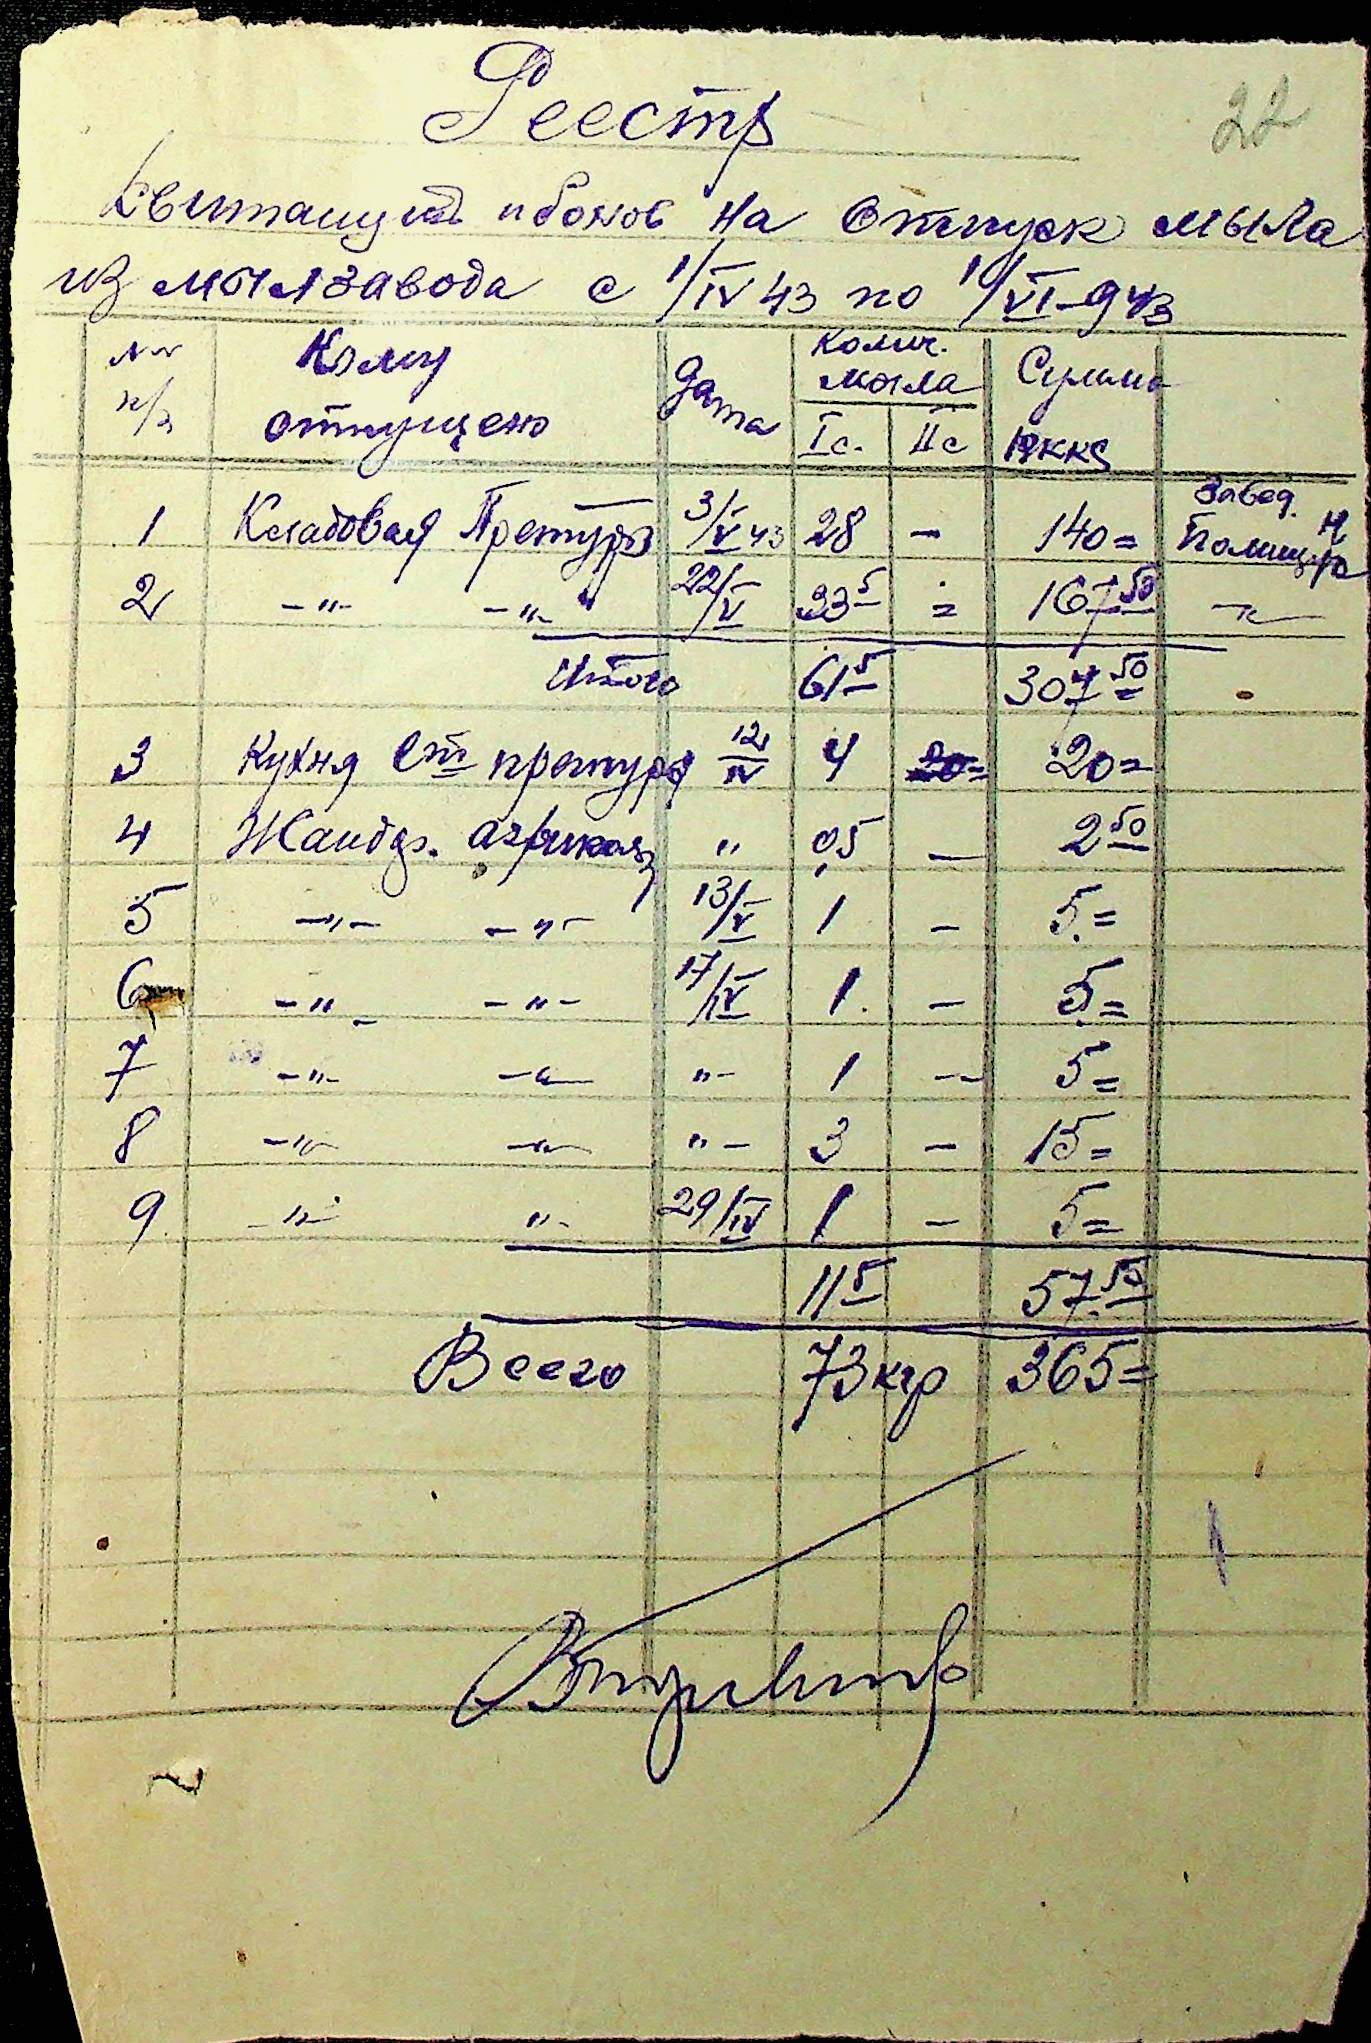 22
Реестр
Квитанций и бонов на отпуск мыла
из мылзавода с 1/IV 43 по 1/VI-943
№№ п/п Кому отпущено Дата Колич. мыла Iс. IIс Сумма РККS
1 Кладовая Претуры 3/V 43 28 - 140= Завед. Полищук
2 -"- -"- 22/V 33 5 = 167 50 -"-
Итого 61 5 307 50
3 Кухня ст претуры 12/IV 4 20=
4 Жанд. " 0,5 — 2 50
5 -"- -"- 13/V 1 - 5.=
6 -"- -"- 17/IV 1. - 5.=
7 -"- -"- "- 1 -- 5=
8 -"- -"- "- 3 - 15=
9. -"- "- 29/IV 1 - 5=
11 5 57.50
Всего 73 кгр 365=